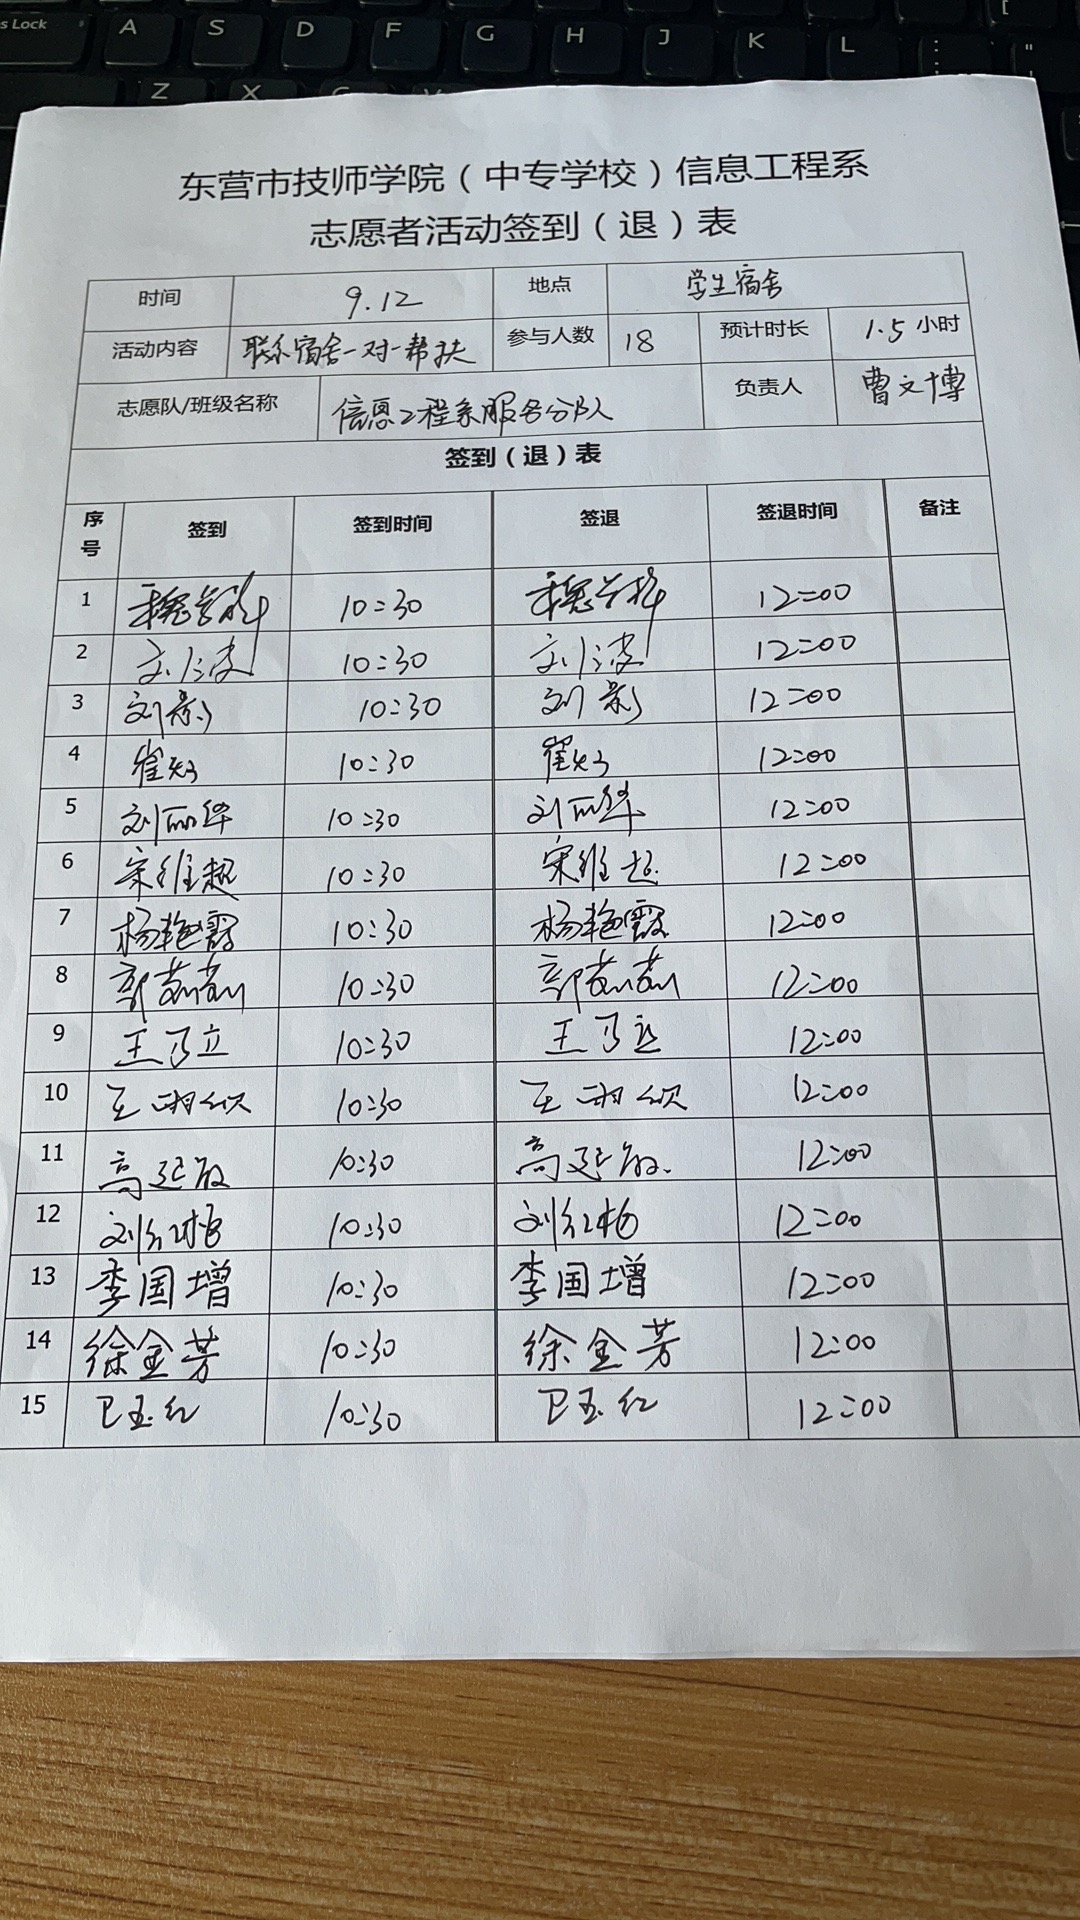 s Lock A S D F G H J K L : [ "
Z X C V
东营市技师学院（中专学校）信息工程系
志愿者活动签到（退）表
时间 9.12 地点 学生宿舍
活动内容 联系宿舍一对一帮扶 参与人数 18 预计时长 1.5 小时
志愿队/班级名称 信息工程系服务分队 负责人 曹文博
签到（退）表
序号 签到 签到时间 签退 签退时间 备注
1 10:30 12:00
2 刘仁波 10:30 刘仁波 12:00
3 刘影 10:30 刘影 12:00
4 10:30 12:00
5 刘丽华 10:30 刘丽华 12:00
6 宋维超 10:30 宋维超 12:00
7 杨艳霞 10:30 杨艳霞 12:00
8 郭茹茹 10:30 郭茹茹 12:00
9 王乃立 10:30 王乃立 12:00
10 王 10:30 王 12:00
11 高延敏 10:30 高延敏 12:00
12 刘红梅 10:30 刘红梅 12:00
13 李国增 10:30 李国增 12:00
14 徐金芳 10:30 徐金芳 12:00
15 卫玉红 10:30 卫玉红 12:00